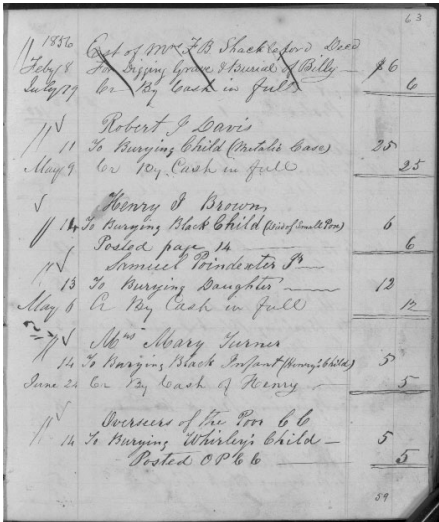 63
1856
Est of Mrs F B Shackleford Decd
Feby 8 For Digging Grave & Burial of Billy $6
July 29 Cr By Cash in full 6
Robert J Davis
11 To Burying Child (Metalic Case) 25
May 9 Cr By Cash in full 25
Henry J Brown
14 To Burying Black Child (Died of Small Pox) 6
Posted page 14 6
Samuel Poindexter
13 To Burying Daughter 12
May 6 Cr By Cash in full 12
Mrs Mary Turner
14 To Burying Black Infant (Henry's Child) 5
June 24 Cr By Cash of Henry 5
Overseers of the Poor C C
14 To Burying Whirley's Child 5
Posted O P C C 5
59